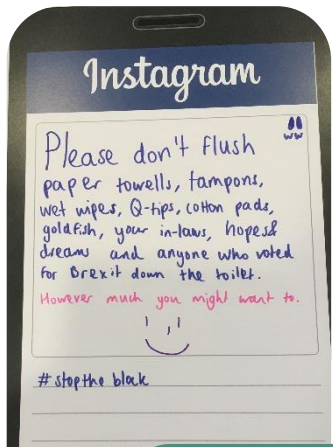 Instagram
Please don't flush
paper towells, tampons,
wet wipes, Q-tips, cotton pads,
goldfish, your in-laws, hopes&
dreams and anyone who voted
for Brexit down the toilet.
However much you might want to.
#stopthe block